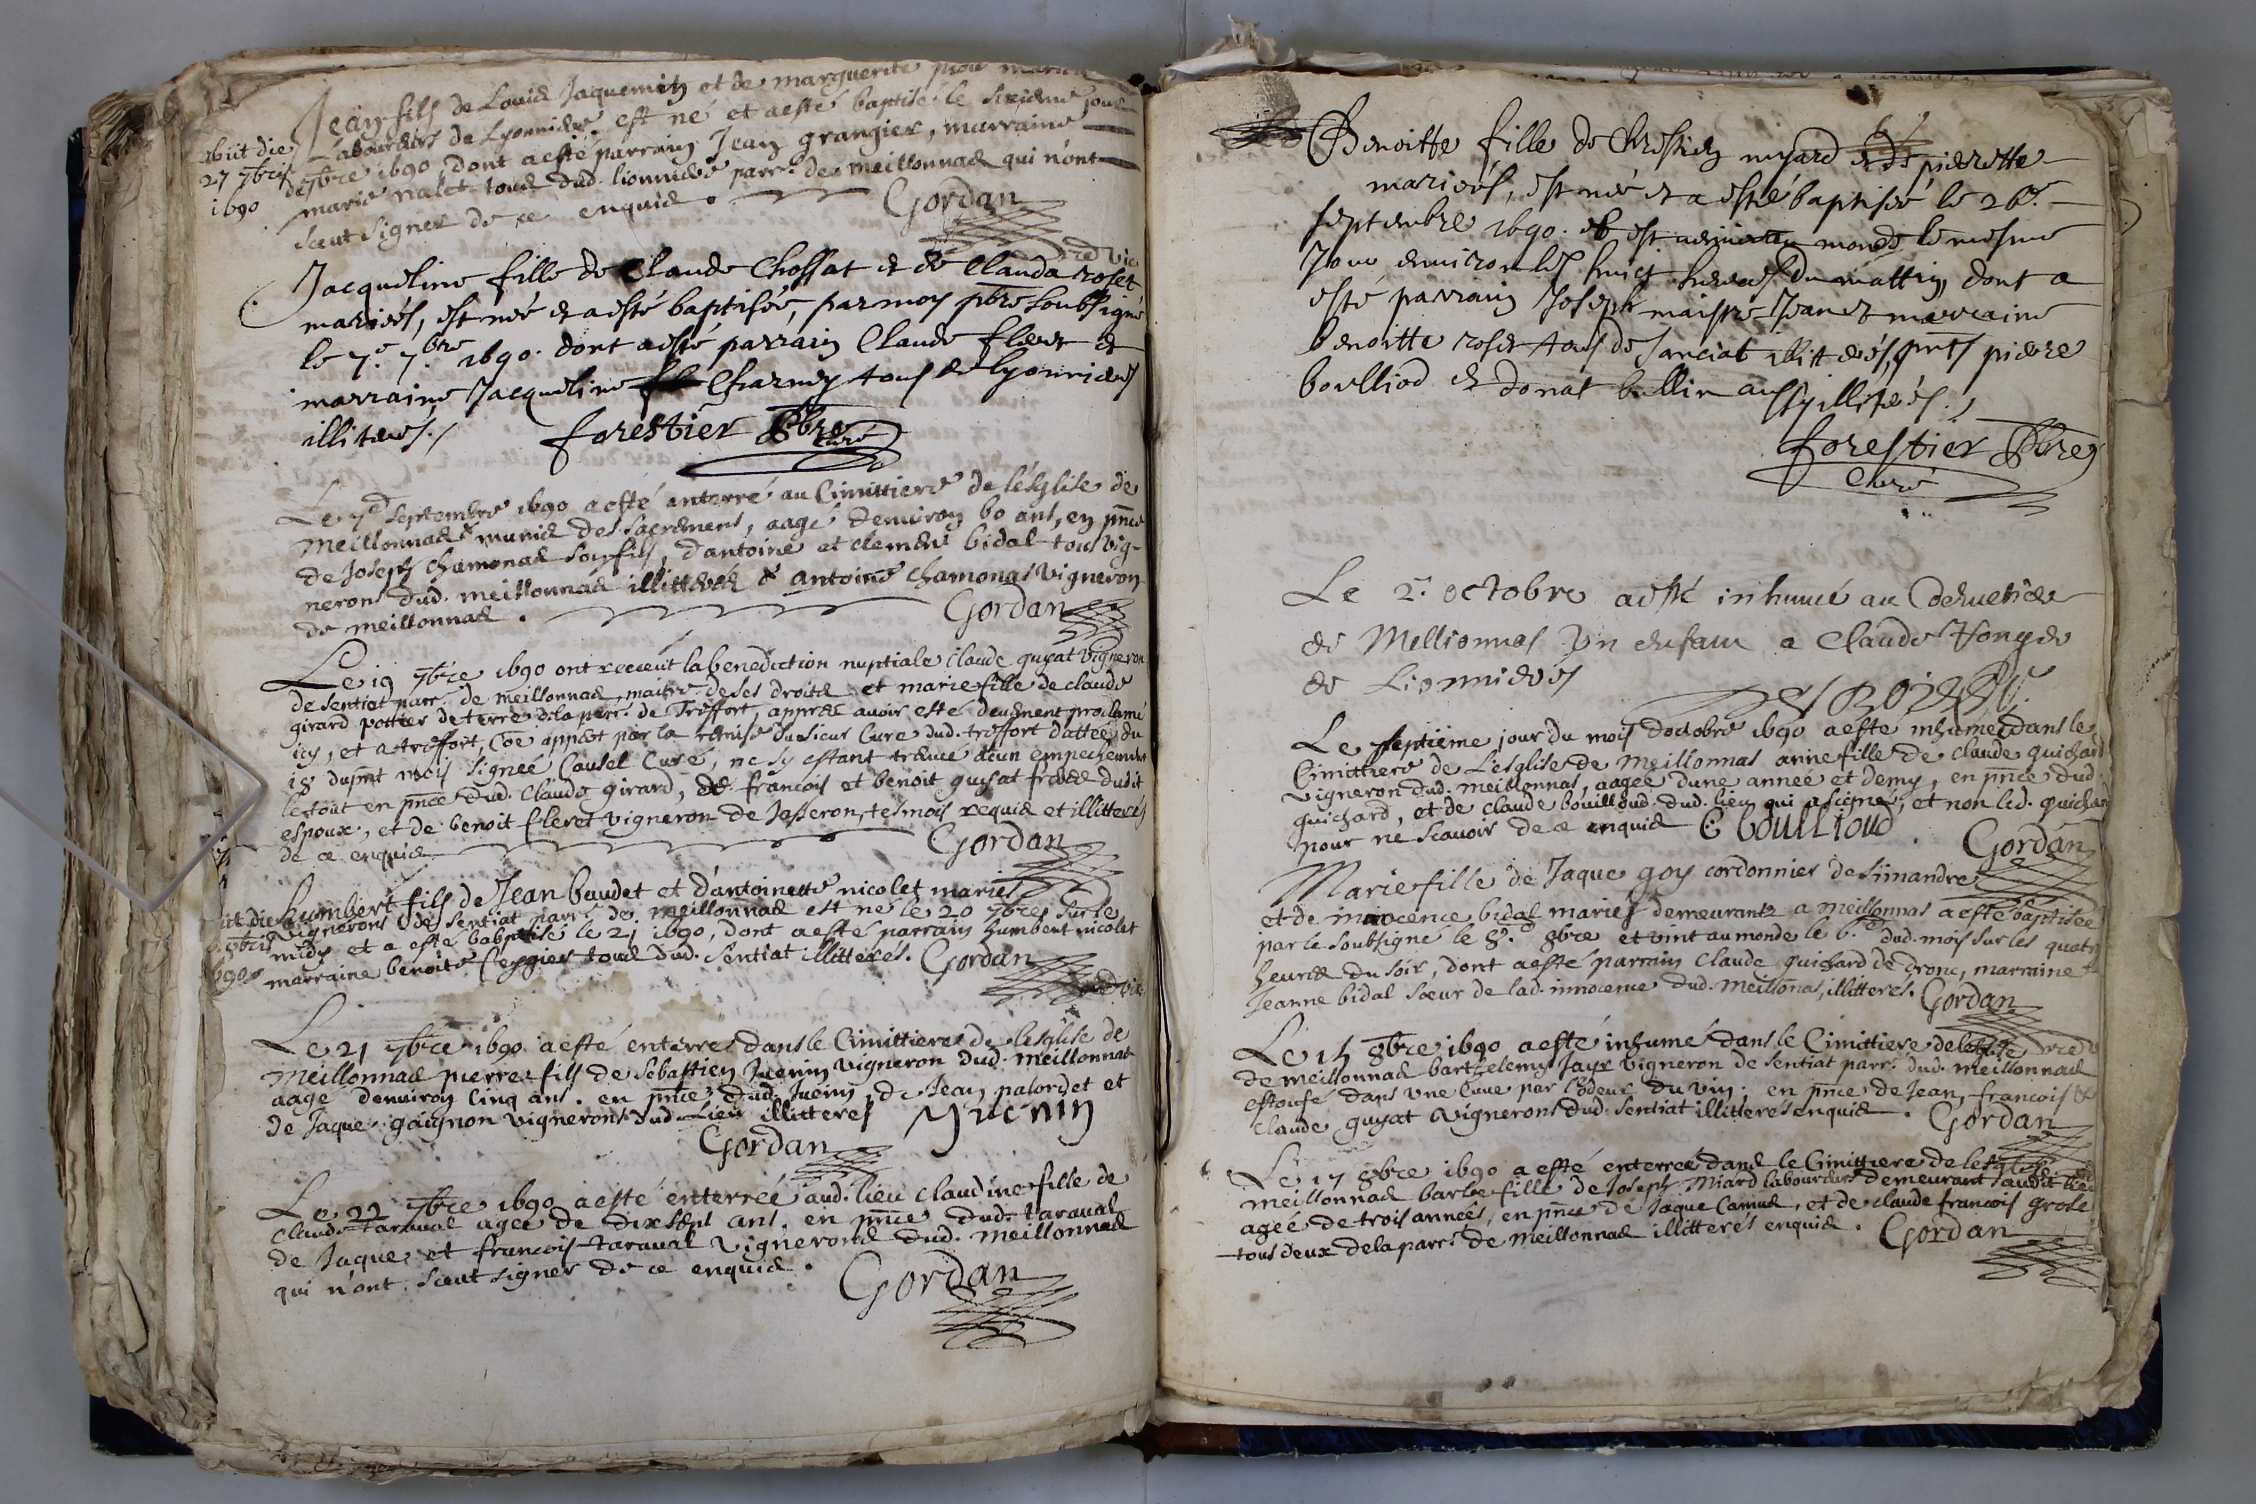 Jean fils de Louis Jaquemin et de marguerite mariés
Laboureurs de Lyonnieres est né et a esté baptisé le sixieme jour
obiit die
27 7bris
1690
de 7bre 1690, dont a esté parrain Jean grangier, marraine
marie nalet tous dud. lionnieres parr. de meillonnas qui n'ont
sceut signer de ce enquis. Gordan
Jacqueline fille de Claude Chossat et de Clauda rolet
mariés, est née et a esté baptisée, par moy pbre soubsigné
le 7e 7bre 1690. dont a esté parrain Claude fleret et
marraine Jacqueline Charney tous de lyonnieres
illiteres./ forestier Pbre
curé
Le 7e septembre 1690 a esté anterré au Cimittiere de l'ésglise de
Meillonnas munie des sacremens, aagé denviron 60 ans, en pnce
de Joseph chamonal son fils, d'antoine et clement bidal tous vig-
nerons dud. meillonnas illitteres & antoine chamonas vigneron
de meillonnas. Gordan
Le 19 7bre 1690 ont receut la benediction nuptiale claude guyat vigneron
de sentiat parr. de meillonnas maitre de ses droits et marie fille de claude
girard pottier de terre de la parr. de Treffort, apprés avoir esté deuement proclamé
icy, et a treffort, coe appert par la remise du sieur Curé dud. treffort dattée du
18 du pnt mois signée Causel Curé, ne sy estant treuvé aucun empechement
le tout en pnce dud. Claude girard, de francois et benoit guyat freres dudit
espoux, et de benoit fleret vigneron de Jasseron, tesmois requis et illitteres
de ce enquis Gordan
humbert fils de Jean baudet et d'antoinette nicolet mariés
vignerons de sentiat parr. de meillonnas est né le 20 7bre sur le
midy et a esté babptisé le 21 1690, dont a esté parrain humbert nicolet
marraine benoite tous dud. sentiat illitteres. Gordan
Le 21 7bre 1690 a esté enterré dans le Cimittiere de lesglise de
Meillonnas pierre fils de Sebastien Juenin vigneron dud. meillonnas
aagé denviron cinq ans. en pnce dud. Juenin, de Jean palordet et
de Jaque gaignon vignerons dud. Lieu illitteres Juenin
Gordan
Le 22 7bre 1690 a esté enterreé aud. lieu claudine fille de
claude taraual ageé de dixsept ans. en pnce dud. taraual
de Jaque et francois taraual vignerons dud. meillonnas
qui n'ont sceut signer de ce enquis. Gordan
Benoitte fille de Chrestien myard et de pierrette
mariées, est née et a esté baptisée le 26e
septembre 1690. et est venue au monde le mesme
Jour environ les huict heures du mattin, dont a
esté parrain Joseph maistre Jean et marraine
benoitte rolet tous de sanciat illiterés, pnts pierre
boulliod et donat bullin aussy illiterés./
forestier Pbre
Curé
Le 2e octobre a esté inhumé au Cemetiere
de Mellionnas Un enfant a Claude
de Lionnieres
Le septieme jour du mois doctobre 1690 a esté inhumeé dans le
Cimittiere de L'esglise de Meillonnas anne fille de claude guichard
vigneron dud. meillonnas, aageé dune anneé et demy, en pnce dud.
guichard, et de claude bouilloud dud. lieu qui a signé, et non led. guichard
pour ne scavoir de ce enquis C boullioud. Gordan
Marie fille de Jaque goy cordonnier de simandre
et de innocence bidal mariés demeurants a meillonnas a esté baptisée
par le soubsigné le 8e 8bre et vint au monde le 6e dud. mois sur les quatre
heures du soir, dont a esté parrain claude guichard de Drone, marraine
Jeanne bidal soeur de lad. innocence dud. meillonas, illitteres. Gordan
Le 15 8bre 1690 a esté inhumé dans le Cimittiere de leglise
de meillonnas barthelemy Jayr vigneron de sentiat parr. dud. meillonnas
estoufé dans une cuve par l'odeur du vin; en pnce de Jean, francois &
claude guyat vignerons dud. sentiat illitteres enquis. Gordan
Le 17 8bre 1690 a esté enterreé dans le Cimittiere de lesglise de
meillonnas barbe fille de Joseph Miard laboureur demeurant audit lieu
ageé de trois anneés, en pnce de Jaque Camus, et de claude francois grole
tous deux de la parr. de meillonnas illitterés enquis. Gordan